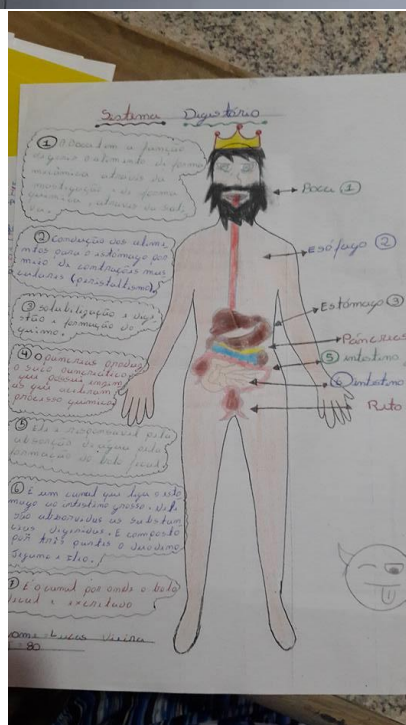 Sistema Digestório
① A Boca tem a função
digerir o alimento de forma
mecânica através da
mastigação, e de forma
química através da sali
va.
② Condução dos alime
ntos para o estômago por
meio de contrações mus
culares (peristaltismo)
③ solubilização e dige
stão e formação do
quimo.
④ O pâncreas produz
o suco pancreático
que possui enzim
as que
processo químico
5 Ele é responsável pela
absorção de água e pela
formação do bolo fecal
⑥ É um canal que liga o estô
mago ao intestino grosso. Nele
são absorvidas as substân
cias digeridas. É composto
por três partes o duodeno
Jejuno e Ílio.
É o canal por onde o bolo
fecal é excretado
Boca ①
Esôfago ②
Estômago ③
Pâncreas
⑤ intestino
⑥ intestino
Reto
ome: Lucas Vieira
80